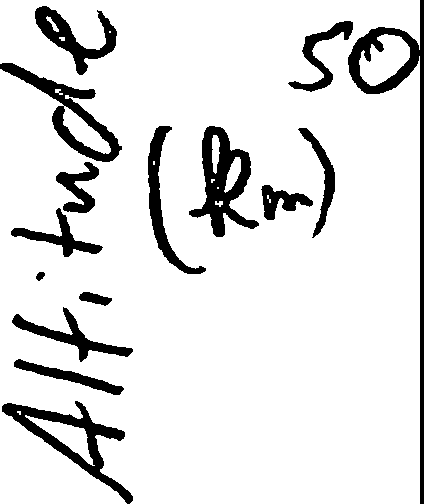 Altitude
(km)
50